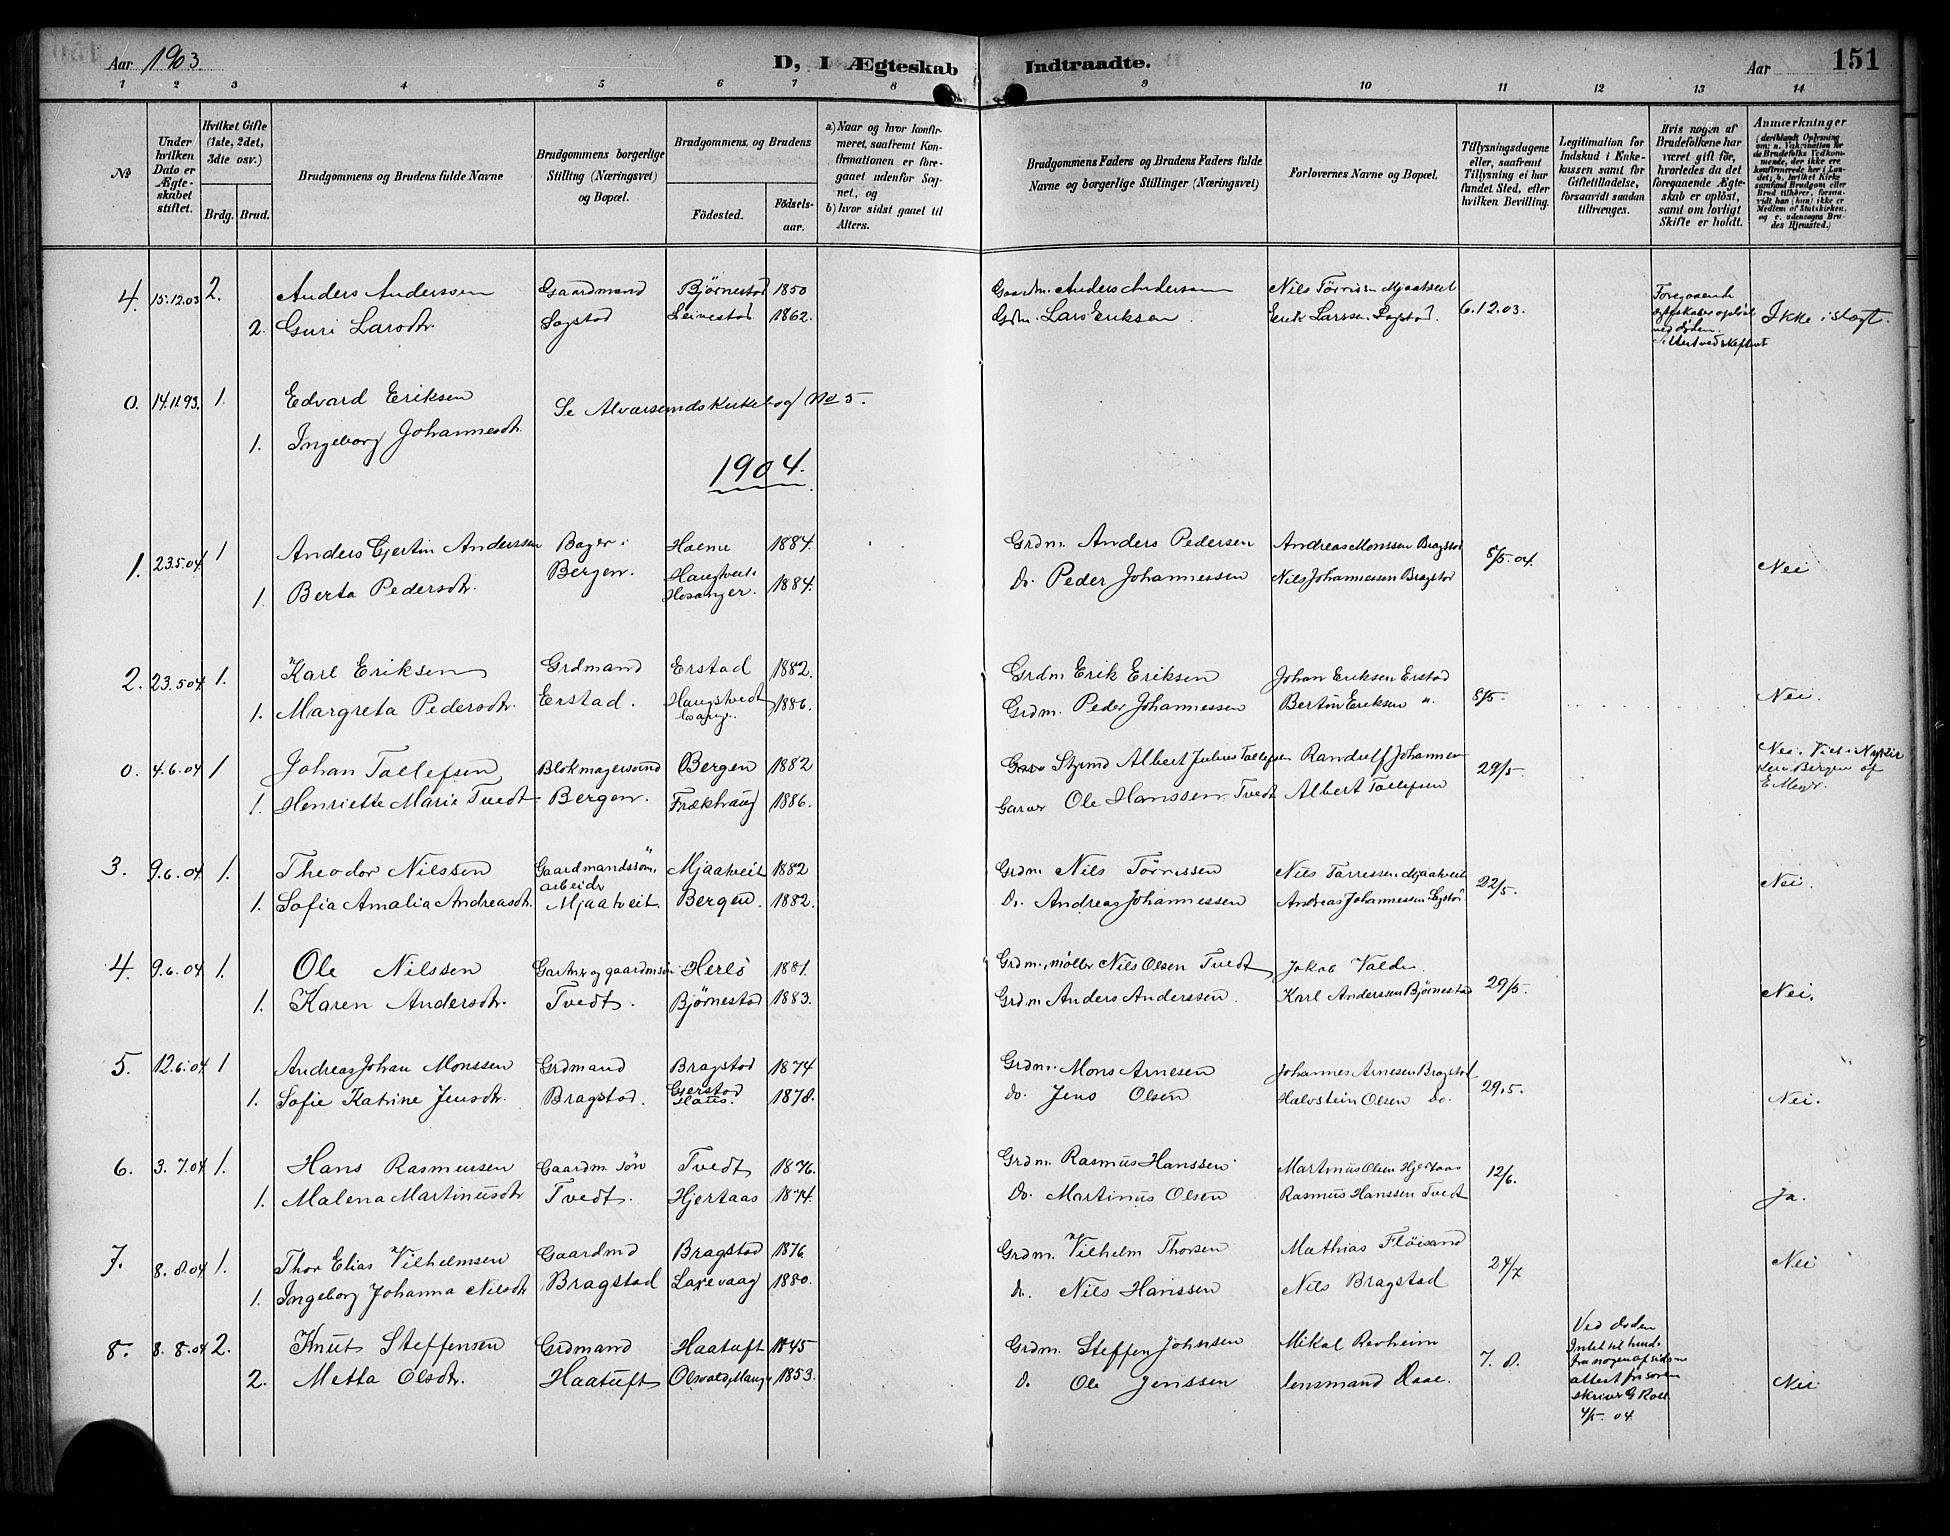 Aar 1903.
D, I Ægteskab Indtraadte.
Aar
151
1 2 3 4 5 6 7 8 9 10 11 12 13 14
No
Under hvilken Dato er Ægteskabet stiftet.
Hvilket Gifte (1ste, 2det, 3die osv.)
Brdg. Brud.
Brudgommens og Brudens fulde Navne
Brudgommens borgerlige Stilling (Næringsvei) og Bopæl.
Brudgommens og Brudens
Fødested.
Fødsels-aar.
a) Naar og hvor konfirmeret, saafremt Konfirmationen er foregaaet udenfor Sognet, og
b) hvor sidst gaaet til Alters.
Brudgommens Faders og Brudens Faders fulde Navne og borgerlige Stillinger (Næringsvei)
Forlovernes Navne og Bopæl.
Tillysningsdagene eller, saafremt Tillysning ei har fundet Sted, efter hvilken Bevilling.
Legitimation for Indskud i Enkekassen samt for Giftetilladelse, forsaavidt saadan tiltrænges.
Hvis nogen af Brudefolkene har været gift før, hvorledes da det foregaaende Ægteskab er opløst, samt om lovligt Skifte er holdt.
Anmærkninger
4. 15.12.03 2. Anders Anderssen Gaardmand Bjørnestad 1850 Gaardm. Anders Anderssen Nils Tørrisen Mjaatveit 6.12.03. Foregaaende
2. Guri Larsdtr. Sagstad 1862. Grdm. Lars Eriksen. Erik Larssen Sagstad. Ikke i slægt.
0. 14.11.93. 1. Edvard Eriksen Se Alværsunds Kirkebog No 5.
1. Ingeborg Johannesdtr.
1904.
1. 23.5.04 1 Anders Gjertin Anderssen Bager i 1884. Grdm. Anders Pedersen Andreas Monssen Bragstad 8/5-04. Nei
1. Berta Pedersdtr. Bergen. Hosanger. 1884. Do. Peder Johannessen Nils Johannessen Bragstad
2. 23.5.04 1. Karl Eriksen Grdmand Erstad 1882. Grdm Erik Eriksen Johan Eriksen Erstad
1. Margreta Pedersdtr. Erstad. Haugstvedt 1886. Grdm. Peder Johannessen Bertin Eriksen " 8/5. Nei.
0. 4.6.04 1 Johan Tollefsen Bergen 1882 Albert Julius Tollefsen Randulf Johannsen 29/5. Nei.
1. Henriette Marie Tvedt Bergen. Frækhaug 1886. Garver Ole Hanssen Tvedt Albert Tollefsen
3. 9.6.04 1. Theodor Nilssen Gaardmandssøn, arbeider Mjaatveit 1882 Grdm. Nils Tørrissen Nils Tørressen Mjaatveit 22/5. Nei.
1. Sofia Amalia Andreasdtr. Mjaatveit Bergen. 1882. Do. Andreas Johannessen Andreas Johannessen
4. 9.6.04 1. Ole Nilssen Gartner og gaardmsøn Herlø 1881. Grdm., møller Nils Olsen Tvedt Jakob
1. Karen Andersdtr. Tvedt. Bjørnestad 1883. Grdm Anders Anderssen. Karl Anderssen Bjørnestad 29/5. Nei.
5. 12.6.04 1 Andreas Johan Monssen Grdmand Bragstad 1874 Grdm. Mons Arnesen Johannes Arnesen Bragstad 29.5.
1. Sofie Katrine Jensdtr. Bragstad. Gjerstad Haus. 1878. Do. Jens Olsen Halvstein Olsen Do. Nei.
6. 3.7.04 1. Hans Rasmussen Gaardm. søn Tvedt 1876. Grdm. Rasmus Hanssen Martinus Olsen Hjertaas 12/6.
1. Malena Martinusdtr Tvedt. Hjertaas 1874. Do. Martinus Olsen Rasmus Hanssen Tvedt Ja.
7. 8.8.04 1. Thor Elias Vilhelmsen Gaardmd Bragstad 1876 Grdm. Vilhelm Thorsen Mathias Fløisand 24/7 Nei
1. Ingeborg Johanna Nilsdtr Bragstad Laxevaag 1880. Do. Nils Hanssen Nils Bragstad
8. 8.8.04 2. Knut Steffensen Grdmand Haatuft 1845 Grdm. Steffen Johnsen Mikal Revheim 7.8. Ved døden
2. Metta Olsdtr. Haatuft 1853. Do. Ole Jenssen lensmand Nei
4/5-04